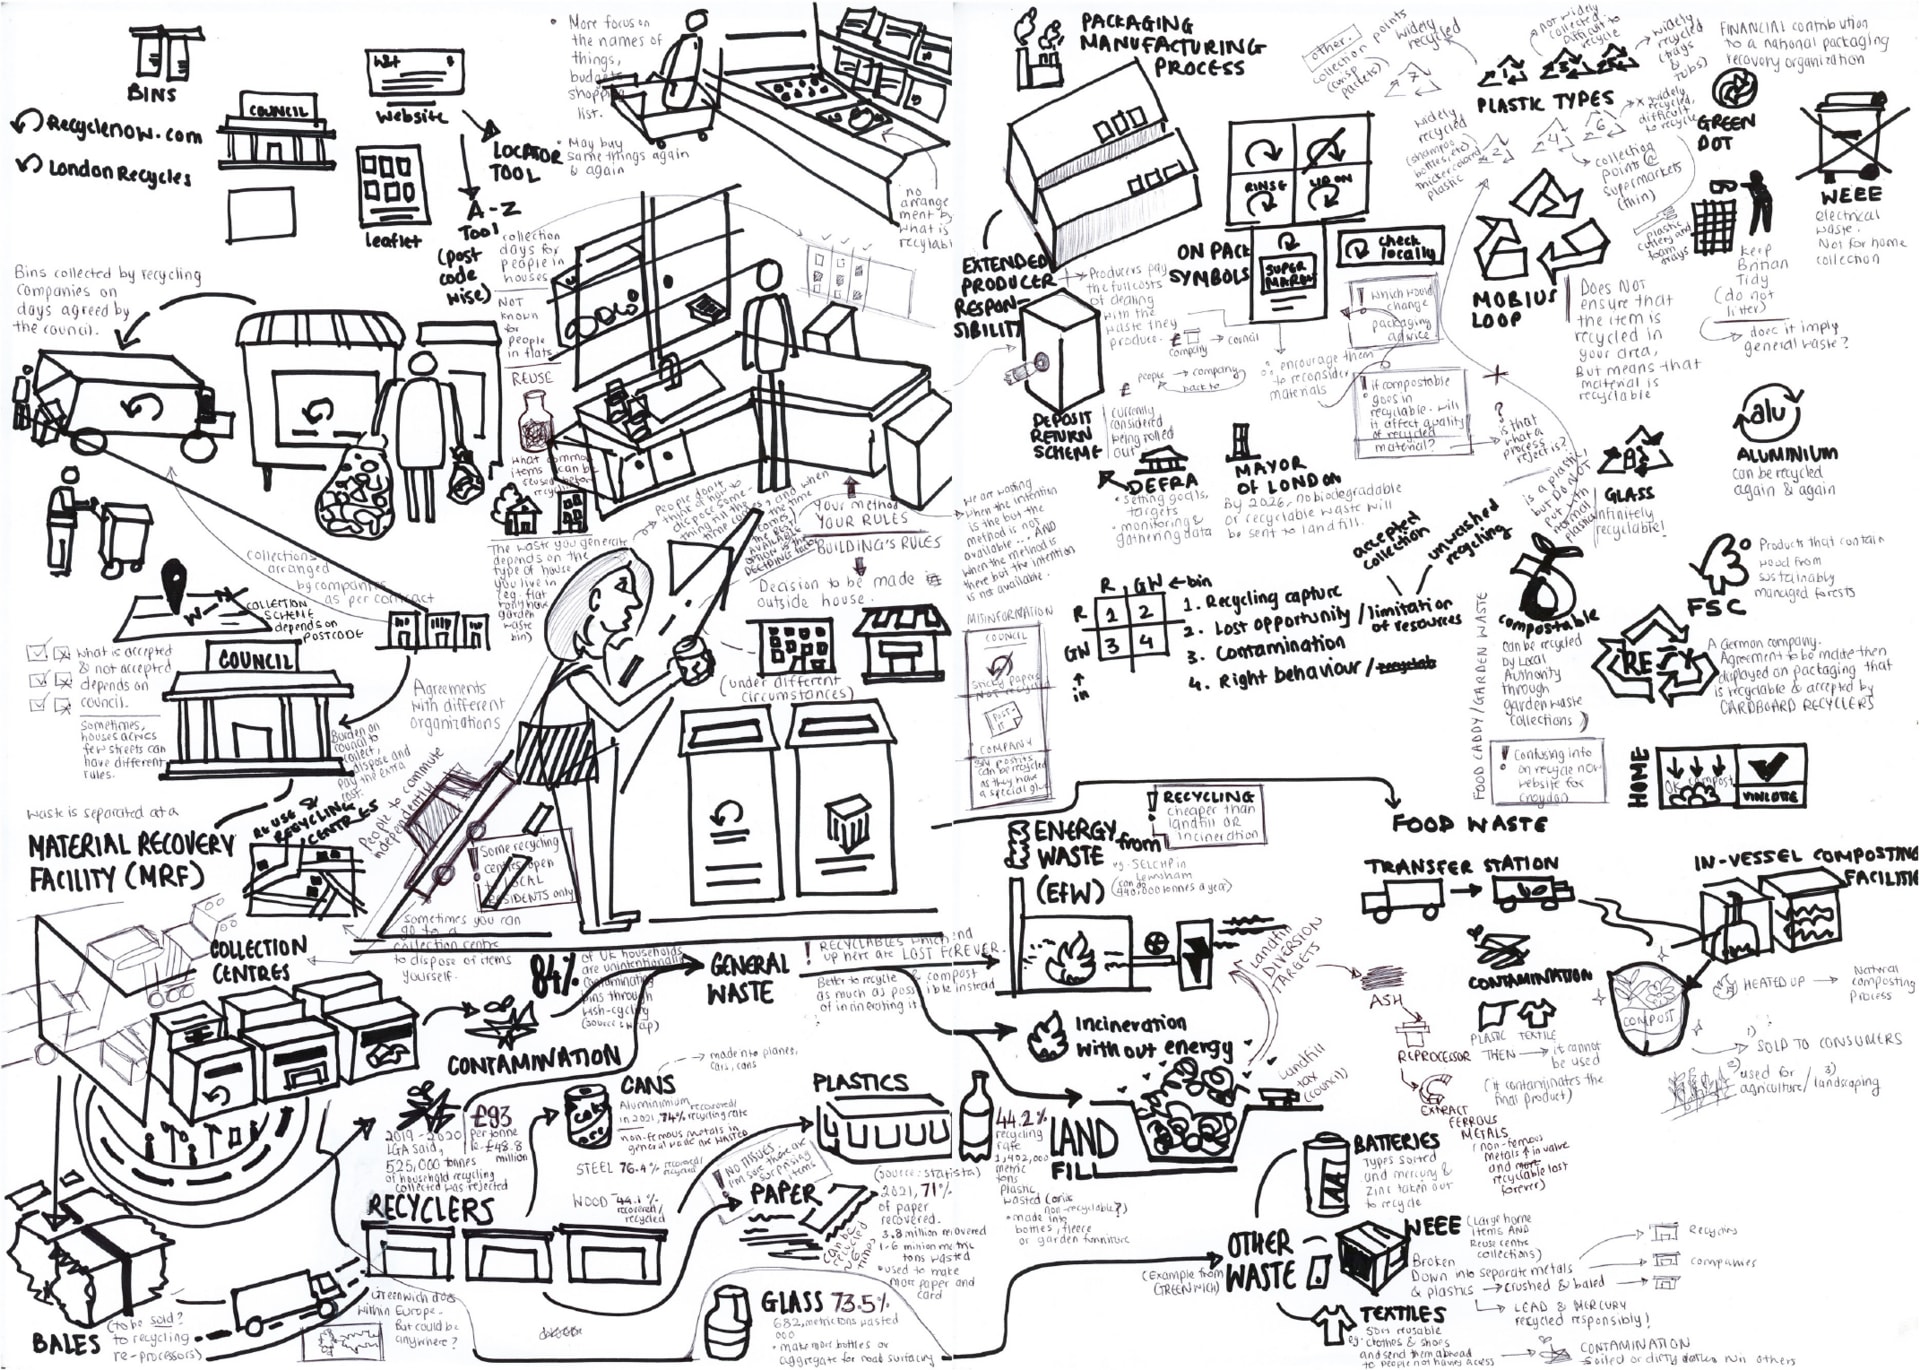 BINS
Recyclenow.com
London Recycles
COUNCIL
Website
LOCATOR
TOOL
leaflet
A-Z
Tool
(post
code
wise)
• More focus on
the names of
things,
budget
shopping
list.
• May buy
same things again
& again
no
arrange
ment by
what is
recylabl
collection
days for
people in
houses
NOT
known
for
people
in flats
REUSE
Bins collected by recycling
companies on
days agreed by
the council.
collections
arranged
by companies
as per contract
COLLECTION
SCHEME
depends on
POSTCODE
What is accepted
& not accepted
depends on
council.
Sometimes,
houses across
few streets can
have different
rules.
COUNCIL
Agreements
with different
organizations
Burden on
council to
collect,
dispose and
pay the extra
cost.
The waste you generate
depends on the
type of house
you live in
(eg. flat
may have
garden
waste
bin)
Your method
YOUR RULES
BUILDING'S RULES
Decision to be made
outside house.
(under different
circumstances)
Waste is separated at a
MATERIAL RECOVERY
FACILITY (MRF)
REUSE &
RECYCLING
CENTRES
People to commute
independently
! Some recycling
centres open
to LOCAL
RESIDENTS only
Sometimes you can
go to a
collection centre
to dispose of items
yourself.
COLLECTION
CENTRES
84%
of UK households
are unintentionally
contaminating
bins through
wish-cycling
(source: wrap)
GENERAL
WASTE
! RECYCLABLES which end
up here are LOST FOREVER.
Better to recycle & compost
as much as possible instead
of incinerating it.
CONTAMINATION
2019-2020
LGA said,
525,000 tonnes
of household recycling
collected was rejected
£93
per tonne
to £48.8
million
CANS
made into planes,
cars, cans
Aluminimum recovered/
in 2021, 74% recycling rate
non-ferrous metals in
general waste are WASTED
STEEL 76.4% recovered/
recycled
WOOD 44.1%
recovered/
recycled
PLASTICS
44.2%
recycling
rate
1,402,000
metric
tons
plastic
wasted
• made into
bottles, fleece
or garden furniture
RECYCLERS
PAPER
(Source: Statista)
2021, 71%
of paper
recovered.
3.8 million recovered
1.6 million metric
tons wasted
• used to make
more paper and
card
can be
recycled
GLASS 73.5%
• make more bottles or
aggregate for road surfacing
BALES
(to be sold?
to recycling
re-processors)
Greenwich does
within Europe.
But could be
anywhere?
PACKAGING
MANUFACTURING
PROCESS
EXTENDED
PRODUCER
RESPON-
SIBILITY
Producers pay
the full costs
of dealing
with the
waste they
produce.
company
council
people
company
back to
encourage them
to reconsider
materials
RINSE
LID ON
ON PACK
SYMBOLS
SUPER
MARKET
check
locally
! which would
change
packaging
advice
! if compostable
goes in
recyclable - will
it affect quality
of recycled
material?
? is that
what a
process
rejects is?
DEPOSIT
RETURN
SCHEME
currently
considered
being rolled
out
DEFRA
• setting goals,
targets
• monitoring &
gathering data
MAYOR
OF LONDON
By 2026, no biodegradable
or recyclable waste will
be sent to landfill.
We are wasting
when the intention
is the but the
method is not
available... AND
when the method is
there but the intention
is not available.
MISINFORMATION
COUNCIL
POST-IT
COMPANY
accepted
collection
unwashed
recycling
R GW ← bin
R 1 2
GW 3 4
in
1. Recycling capture
2. Lost opportunity/limitation
of resources
3. Contamination
4. Right behaviour/
other.
collection points
(crisp
packets)
widely
recycled
7
1
3
PLASTIC TYPES
not widely
collected.
Difficult to
recycle
widely
recycled
(trays
&
tubs)
widely
recycled
(shampoo
bottles, etc)
thicker colored
plastic
2
4
6
x widely
recycled,
difficult
to recycle
collecting
points @
supermarkets
(thin)
plastic
cutlery and
foam
trays
MOBIUS
LOOP
DOES NOT
ensure that
the item is
recycled in
your area,
But means that
material is
recyclable
FINANCIAL contribution
to a national packaging
recovery organization
GREEN
DOT
WEEE
electrical
waste.
Not for home
collection
Keep
Britian
Tidy
(do not
litter)
does it imply
general waste?
alu
ALUMINIUM
can be recycled
again & again
GLASS
infinitely
recyclable!
is a plastic!
but DO NOT
put with
normal
plastic
FSC
Products that contain
wood from
sustainably
managed forests
compostable
can be recycled
by Local
Authority
through
garden waste
collections
FOOD CADDY/GARDEN WASTE
RESY
A German company.
Agreement to be made then
displayed on packaging that
is recyclable & accepted by
CARDBOARD RECYCLERS
! Confusing info
on recycle now
website for
croydon
HOME
OK compost
VINCOTTE
! RECYCLING
cheaper than
landfill OR
incineration
ENERGY
from
WASTE
(EfW)
eg. SELCHP in
Lewisham
FOOD WASTE
TRANSFER STATION
IN-VESSEL COMPOSTING
FACILITIE
CONTAMINATION
PLASTIC TEXTILE
THEN → it cannot
be used
(if contaminates the
final product)
COMPOST
HEATED UP
Natural
composting
process
1)
SOLD TO CONSUMERS
2)
used for
agriculture/landscaping
3)
Incineration
without energy
Landfill
DIVERSION
TARGETS
ASH
REPROCESSOR
EXTRACT
FERROUS
METALS
(non-ferrous
metals ↑ in value
and
recyclable lost
forever)
Landfill
tax
(council)
LAND
FILL
BATTERIES
Types sorted
and mercury &
zinc taken out
to recycle
OTHER
WASTE
(Example from
GREENWICH)
WEEE
(Large home
items AND
Reuse centre
collections)
Broken
Down into separate metals
& plastics → crushed & baled
Recycling
companies
LEAD & MERCURY
recycled responsibly!
TEXTILES
Sort reusable
eg. clothes & shoes
and send them abroad
to people not having access
CONTAMINATION
soiled or dirty clothes ruin others